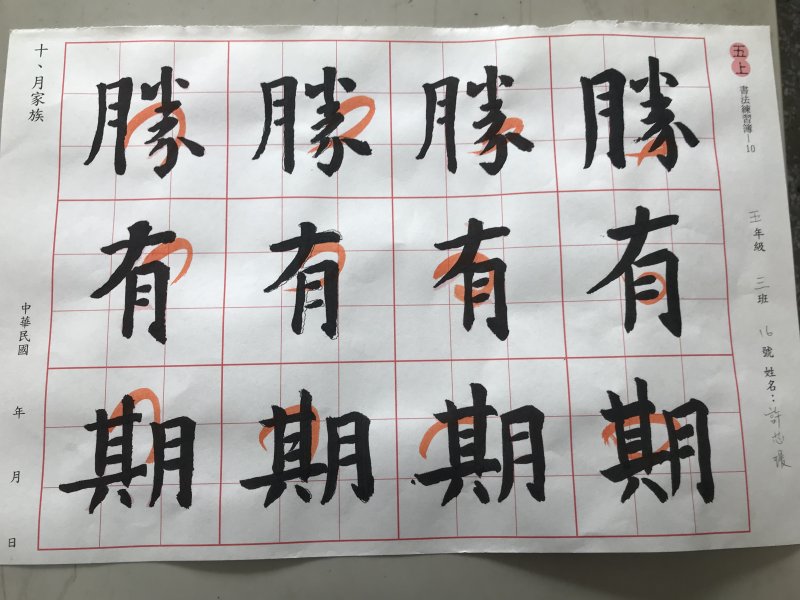 五上
書法練習簿-10
五年級 三班 16號 姓名：許芯
勝 勝 勝 勝
有 有 有 有
期 期 期 期
十、月家族
中華民國 年 月 日